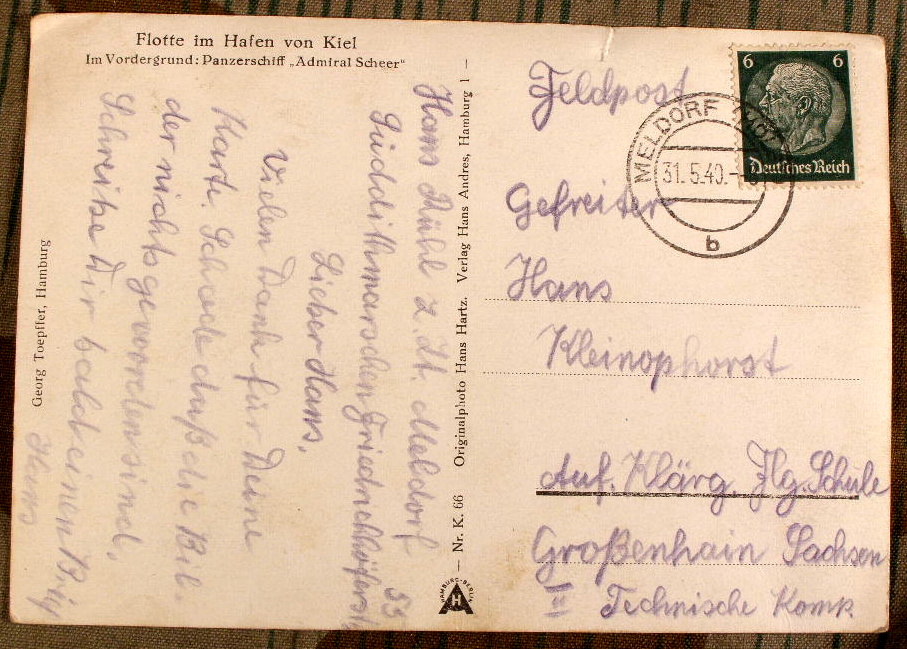 Flotte im Hafen von Kiel
Im Vordergrund: Panzerschiff „Admiral Scheer“
Hans Rühl z. Zt. Meldorf
Süddithmarschen 53
Lieber Hans,
Vielen Dank für Deine
Karte. Schade daß die Bil
der nichts geworden sind.
Schreibe Dir bald einen Brief
Hans
Georg Toepffer, Hamburg
– Nr. K. 66 Originalphoto Hans Hartz. Verlag Hans Andres, Hamburg 1 –
HAMBURG-BERLIN
H
Feldpost
6 6
Deutsches Reich
MELDORF
31.5.40.-
b
Gefreiter
Hans
Kleinophorst
Auf. Klärg. Flg. Schule
Großenhain Sachsen
Technische Komp.